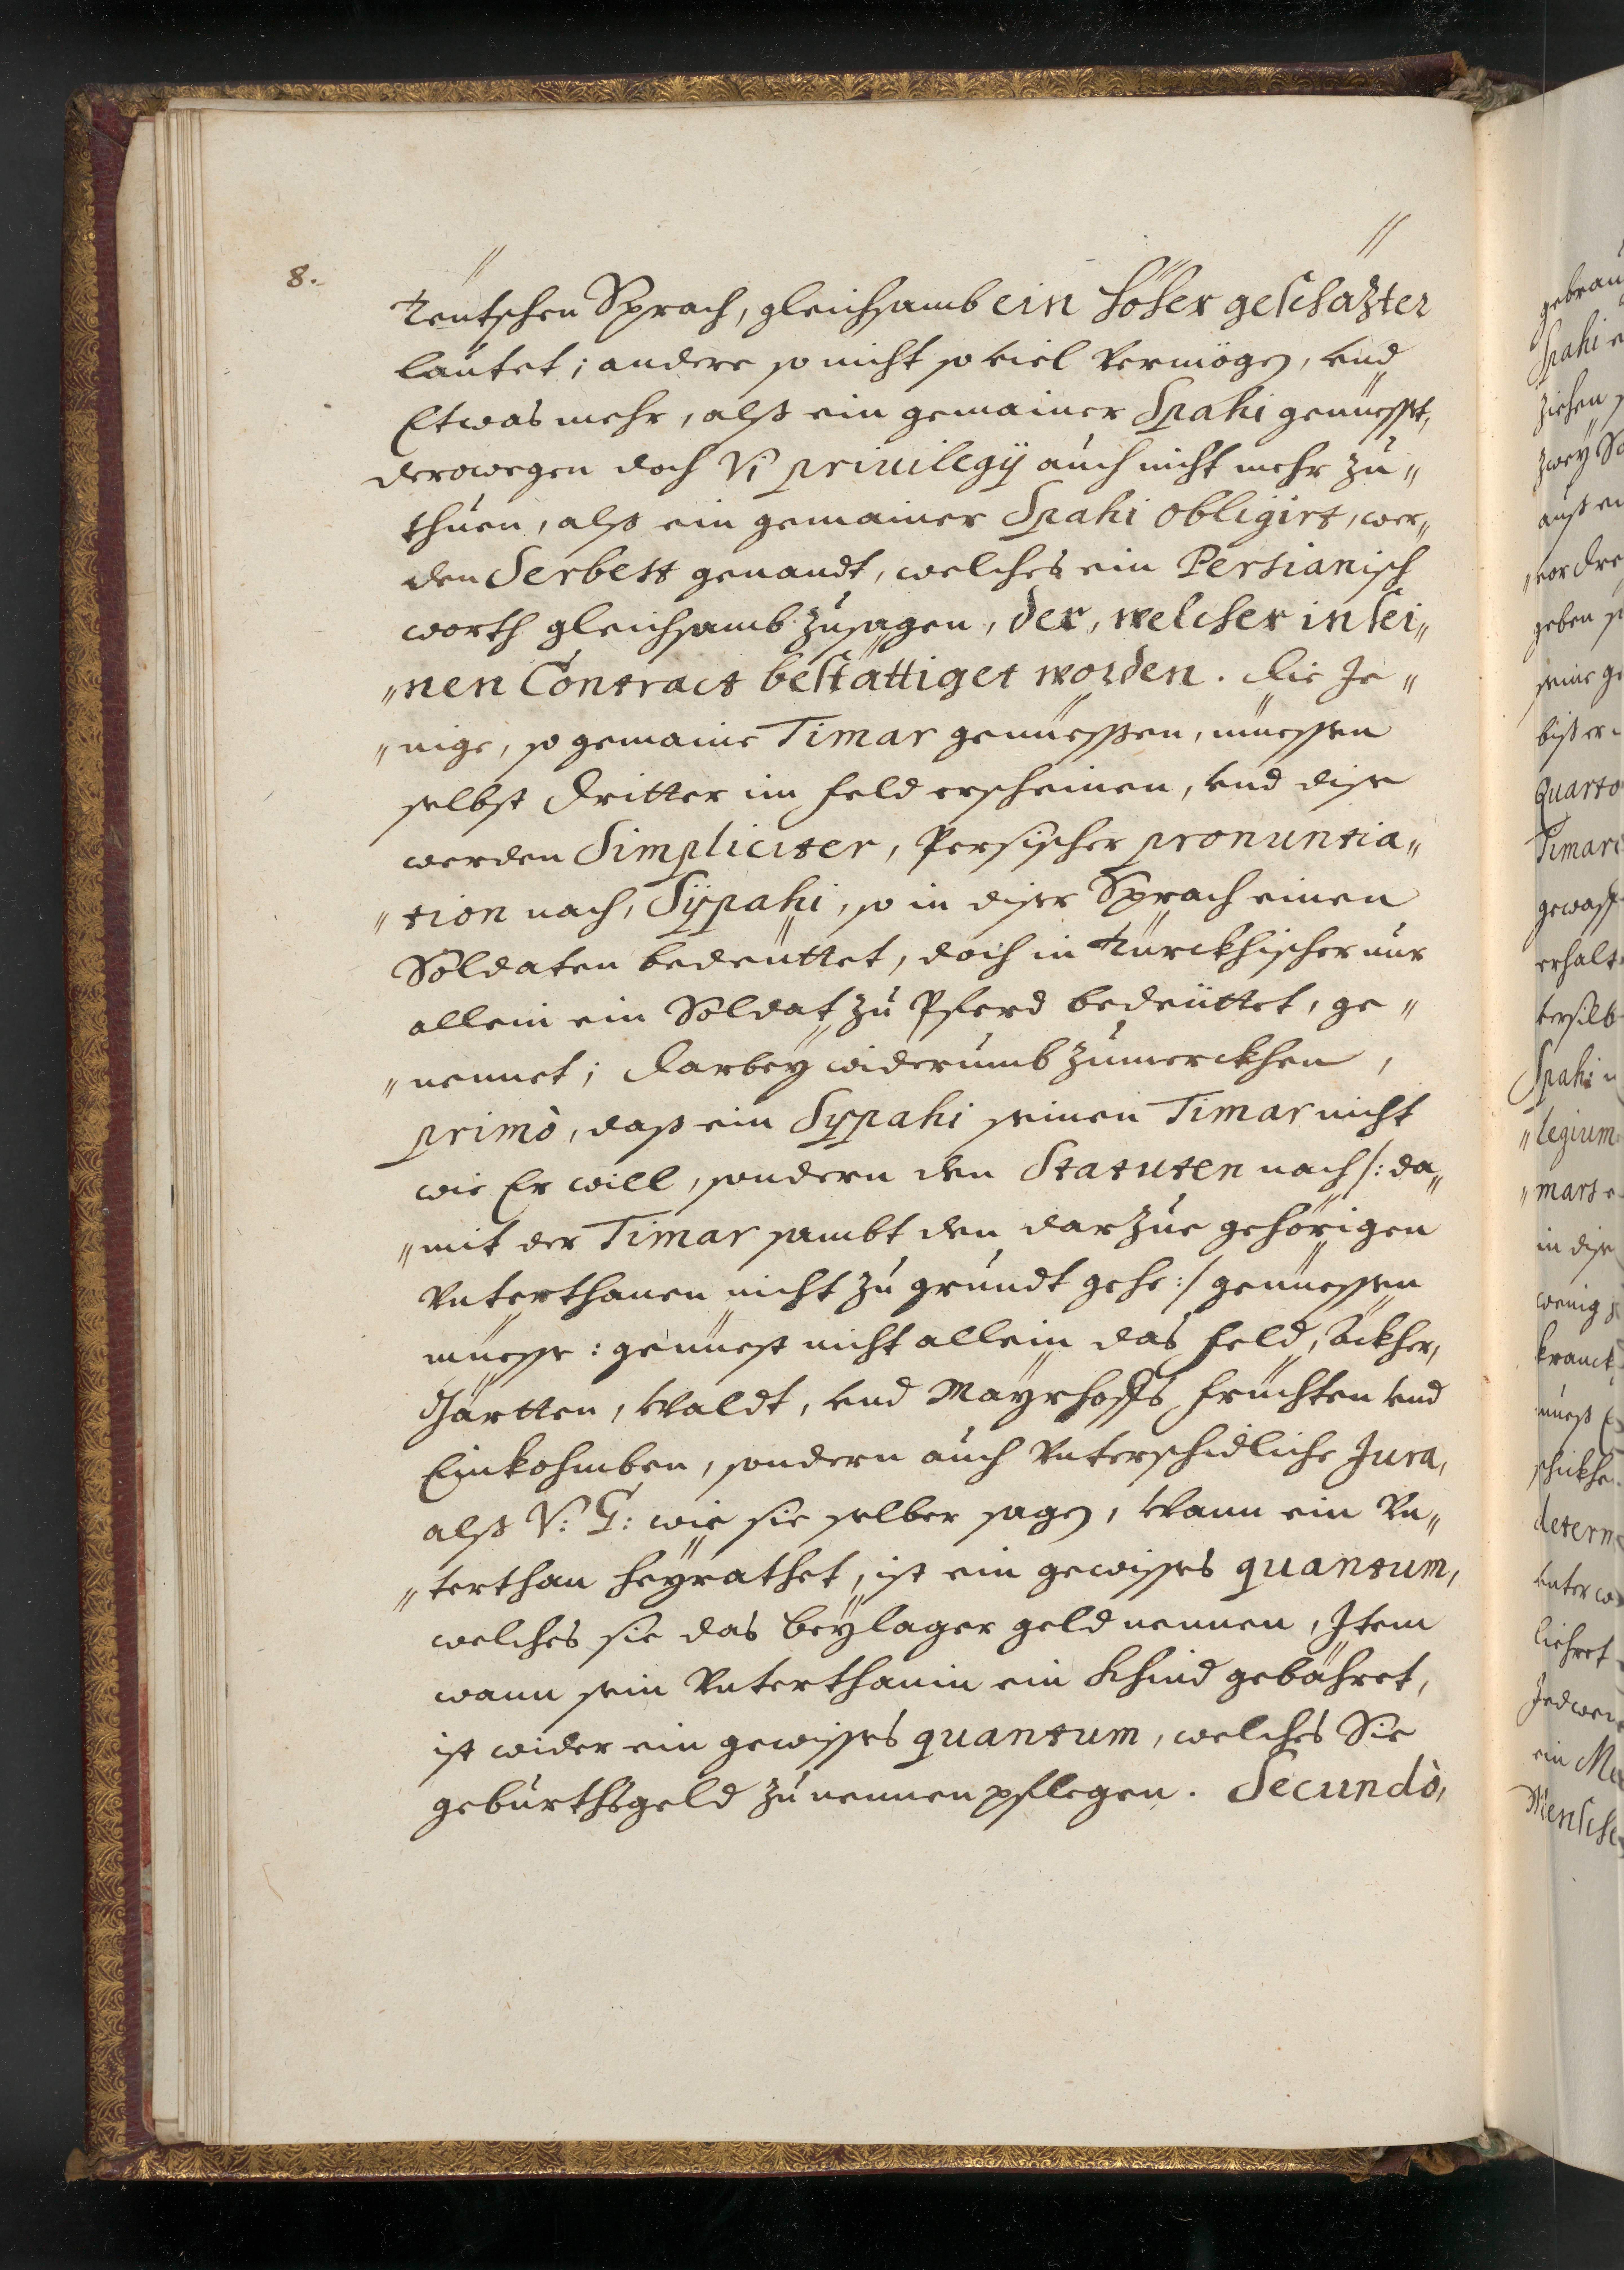 8.
Teütschen Sprach, gleichsamb ein höher geschäzter
lautet; andere so nicht so viel vermögen, vnd
Etwas mehr, alß ein gemainer Spahi genüesset,
derowegen doch Vi privilegÿ auch nicht mehr zu„
thuen, alß ein gemainer Spahi obligirt, wer„
den Serbest genandt, welches ein Persianisch
worth gleichsamb zusagen, der, welcher in sei„
„nen Contract bestättiget worden. Die Je„
„nige, so gemaine Timar genüessen, müessen
selbst Dritter im Feld erscheinen, vnd dise
werden Simpliciter, Persischer pronuntia„
„tion nach, Sÿpahi, so in diser Sprach einen
Soldaten bedeüttet, doch in Türckhischer nur
allein ein Soldat zu Pferd bedeüttet, ge„
„nennet; Darbeÿ widerumb zumerckhen,
primò, daß ein Sypahi seinen Timar nicht
wie Er will, sondern den Statuten nach /: da„
„mit der Timar sambt den darzue gehörigen
Vnterthanen nicht zu grundt gehe :/ genüessen
müesse: genüest nicht allein das Feld, Äckher,
Gärtten, Waldt, vnd Maÿrhoffs Früchten vnd
Einkohmben, sondern auch Vnterschidliche Jura,
alß V: G: wie sie selber sagen, Wann ein Vn„
„terthan heÿrathet, ist ein gewisses quantum,
welches sie das beÿlager geld nennen, Item
wann sein Vnterthanin ein Khind gebähret,
ist wider ein gewisses quantum, welches Sie
geburthsgeld zu nennen pflegen. Secundò,
gebrau
Spahi
ziehen
zweÿ
auß
geben
seine
biß er
Quarto
Timar
gewaff
erhalt
Spahi
„legium
„mart
in dise
wenig
kranck
determ
vnter
Jedwe
ein
Mensche